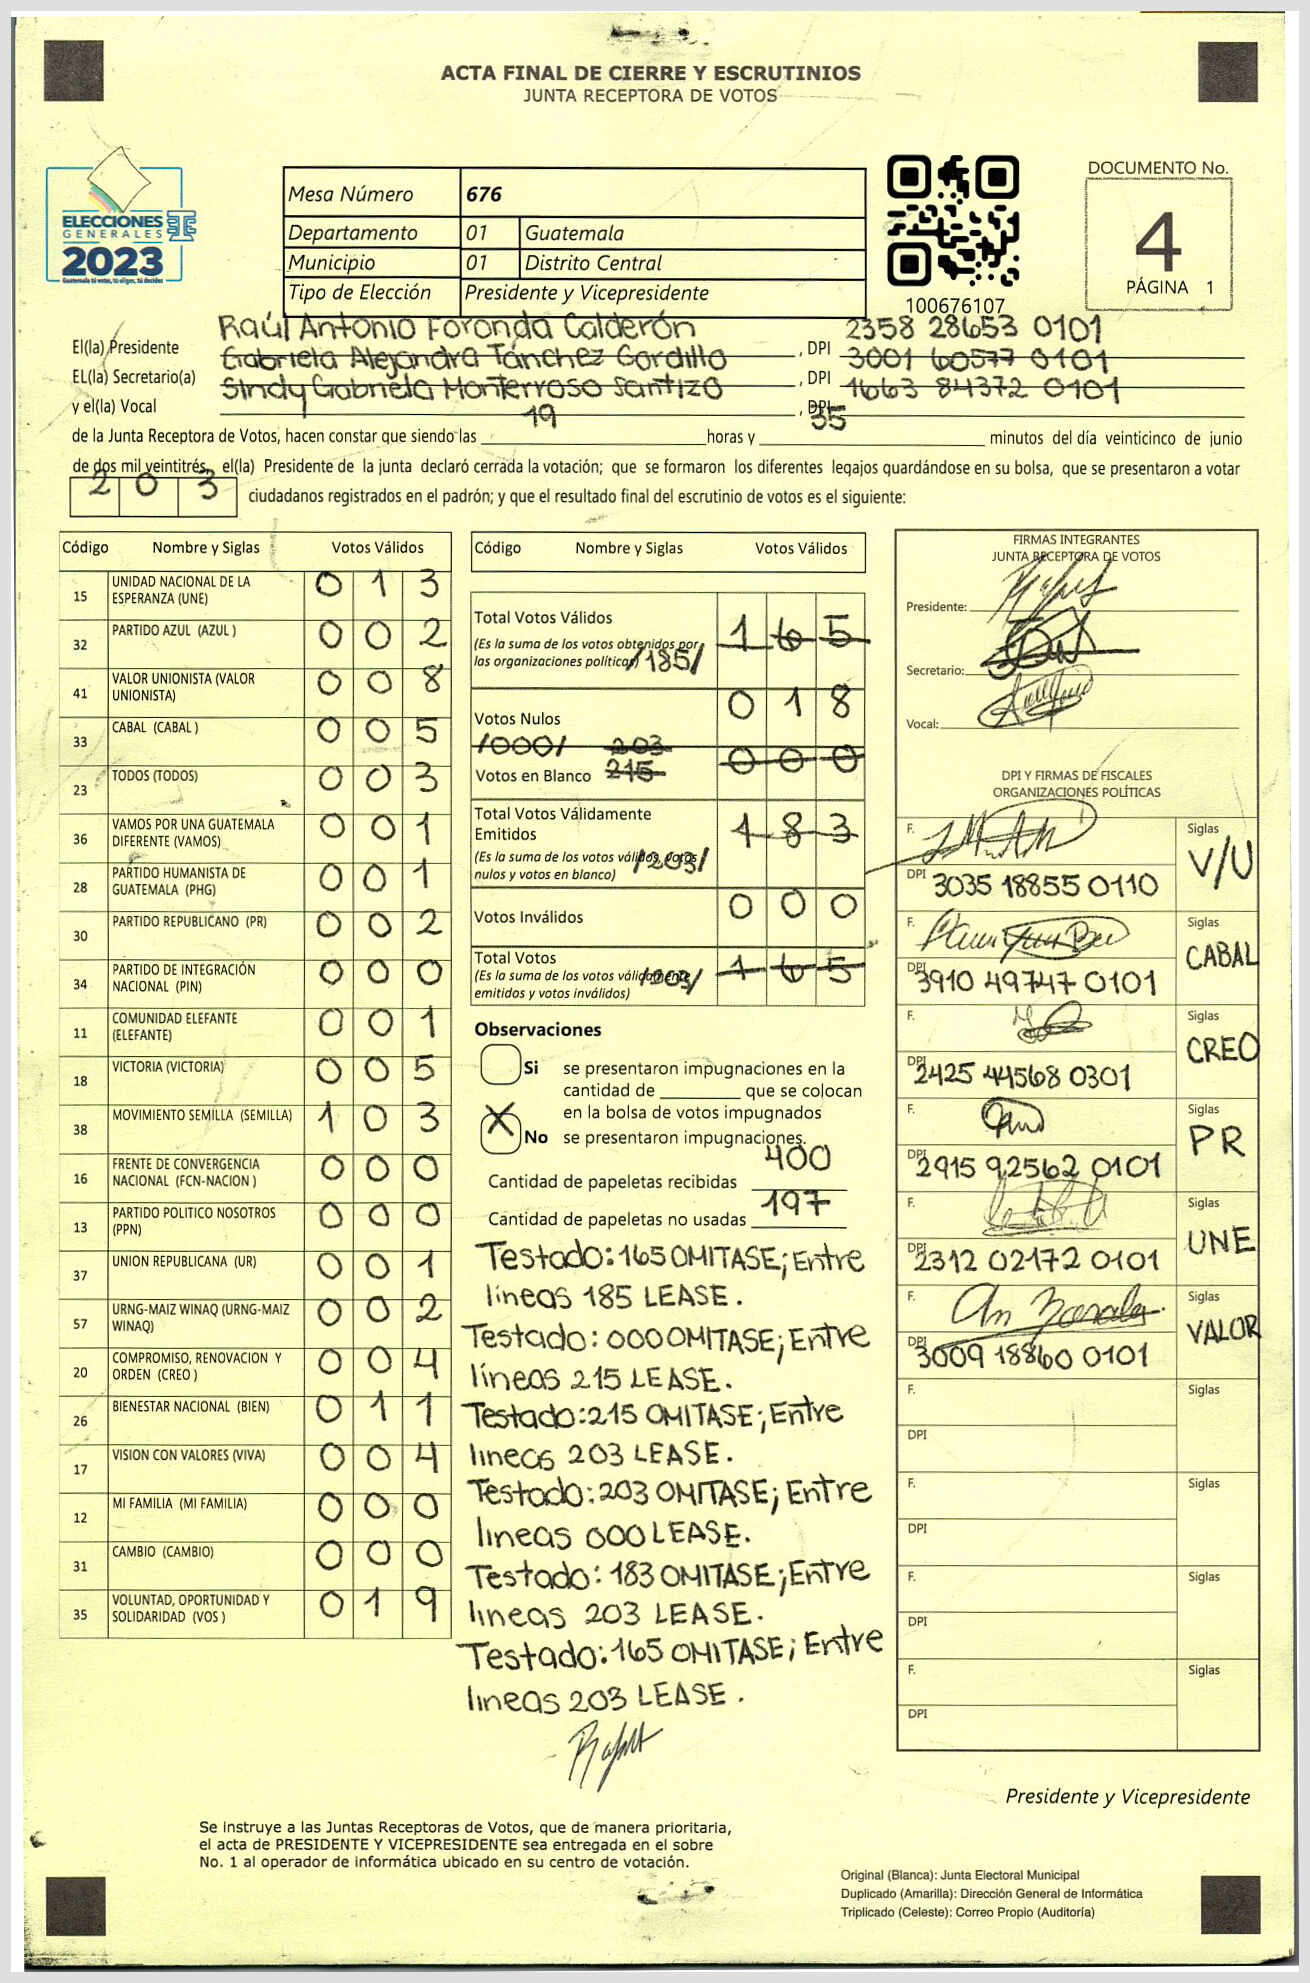 ACTA FINAL DE CIERRE Y ESCRUTINIOS
JUNTA RECEPTORA DE VOTOS
ELECCIONES
GENERALES
2023
Guatemala tú votas, tú eliges, tú decides
Mesa Número 676
Departamento 01 Guatemala
Municipio 01 Distrito Central
Tipo de Elección Presidente y Vicepresidente
100676107
DOCUMENTO No.
4
PÁGINA 1
Raúl Antonio Foronda Calderón 2358 28653 0101
El(la) Presidente Gabriela Alejandra Tánchez Gordillo , DPI 3001 60577 0101
EL(la) Secretario(a) Sindy Gabriela Monterroso Santizo , DPI 1663 84372 0101
y el(la) Vocal , DPI
de la Junta Receptora de Votos, hacen constar que siendo las 19 horas y 35 minutos del día veinticinco de junio
de dos mil veintitrés, el(la) Presidente de la junta declaró cerrada la votación; que se formaron los diferentes legajos guardándose en su bolsa, que se presentaron a votar
203 ciudadanos registrados en el padrón; y que el resultado final del escrutinio de votos es el siguiente:
Código Nombre y Siglas Votos Válidos
15 UNIDAD NACIONAL DE LA ESPERANZA (UNE) 0 1 3
32 PARTIDO AZUL (AZUL ) 0 0 2
41 VALOR UNIONISTA (VALOR UNIONISTA) 0 0 8
33 CABAL (CABAL ) 0 0 5
23 TODOS (TODOS) 0 0 3
36 VAMOS POR UNA GUATEMALA DIFERENTE (VAMOS) 0 0 1
28 PARTIDO HUMANISTA DE GUATEMALA (PHG) 0 0 1
30 PARTIDO REPUBLICANO (PR) 0 0 2
34 PARTIDO DE INTEGRACIÓN NACIONAL (PIN) 0 0 0
11 COMUNIDAD ELEFANTE (ELEFANTE) 0 0 1
18 VICTORIA (VICTORIA) 0 0 5
38 MOVIMIENTO SEMILLA (SEMILLA) 1 0 3
16 FRENTE DE CONVERGENCIA NACIONAL (FCN-NACION ) 0 0 0
13 PARTIDO POLITICO NOSOTROS (PPN) 0 0 0
37 UNION REPUBLICANA (UR) 0 0 1
57 URNG-MAIZ WINAQ (URNG-MAIZ WINAQ) 0 0 2
20 COMPROMISO, RENOVACION Y ORDEN (CREO ) 0 0 4
26 BIENESTAR NACIONAL (BIEN) 0 1 1
17 VISION CON VALORES (VIVA) 0 0 4
12 MI FAMILIA (MI FAMILIA) 0 0 0
31 CAMBIO (CAMBIO) 0 0 0
35 VOLUNTAD, OPORTUNIDAD Y SOLIDARIDAD (VOS ) 0 1 9
Código Nombre y Siglas Votos Válidos
Total Votos Válidos 1 6 5
(Es la suma de los votos obtenidos por
las organizaciones políticas) /185/
Votos Nulos 0 1 8
/000/ 203
Votos en Blanco 215 0 0 0
Total Votos Válidamente
Emitidos 1 8 3
(Es la suma de los votos válidos, votos
nulos y votos en blanco) /203/
Votos Inválidos 0 0 0
Total Votos 1 6 5
(Es la suma de los votos válidamente /203/
emitidos y votos inválidos)
Observaciones
Si se presentaron impugnaciones en la
cantidad de ________ que se colocan
en la bolsa de votos impugnados
X No se presentaron impugnaciones.
Cantidad de papeletas recibidas 400
Cantidad de papeletas no usadas 197
Testado: 165 OMITASE; Entre
líneas 185 LEASE.
Testado: 000 OMITASE; Entre
líneas 215 LEASE.
Testado: 215 OMITASE; Entre
lineas 203 LEASE.
Testado: 203 OMITASE; Entre
lineas 000 LEASE.
Testado: 183 OMITASE; Entre
lineas 203 LEASE.
Testado: 165 OMITASE; Entre
lineas 203 LEASE.
FIRMAS INTEGRANTES
JUNTA RECEPTORA DE VOTOS
Presidente:
Secretario:
Vocal:
DPI Y FIRMAS DE FISCALES
ORGANIZACIONES POLÍTICAS
F. Siglas V/U
DPI 3035 18855 0110
F. Siglas CABAL
DPI 3910 49747 0101
F. Siglas CREO
DPI 2425 44568 0301
F. Siglas PR
DPI 2915 92562 0101
F. Siglas UNE
DPI 2312 02172 0101
F. Siglas VALOR
DPI 3009 18860 0101
F. Siglas
DPI
F. Siglas
DPI
F. Siglas
DPI
F. Siglas
DPI
Presidente y Vicepresidente
Se instruye a las Juntas Receptoras de Votos, que de manera prioritaria,
el acta de PRESIDENTE Y VICEPRESIDENTE sea entregada en el sobre
No. 1 al operador de informática ubicado en su centro de votación.
Original (Blanca): Junta Electoral Municipal
Duplicado (Amarilla): Dirección General de Informática
Triplicado (Celeste): Correo Propio (Auditoría)